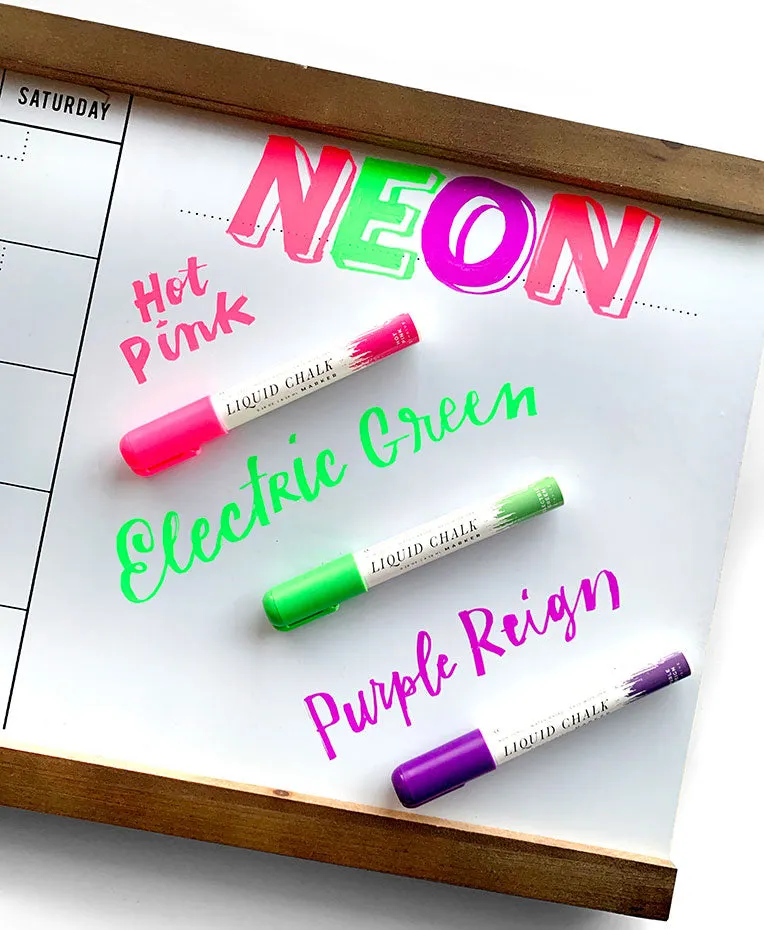 SATURDAY
NEON
Hot
Pink
LIQUID CHALK
MARKER
HOT
PINK
Electric Green
LIQUID CHALK
MARKER
GREEN
Purple Reign
LIQUID CHALK